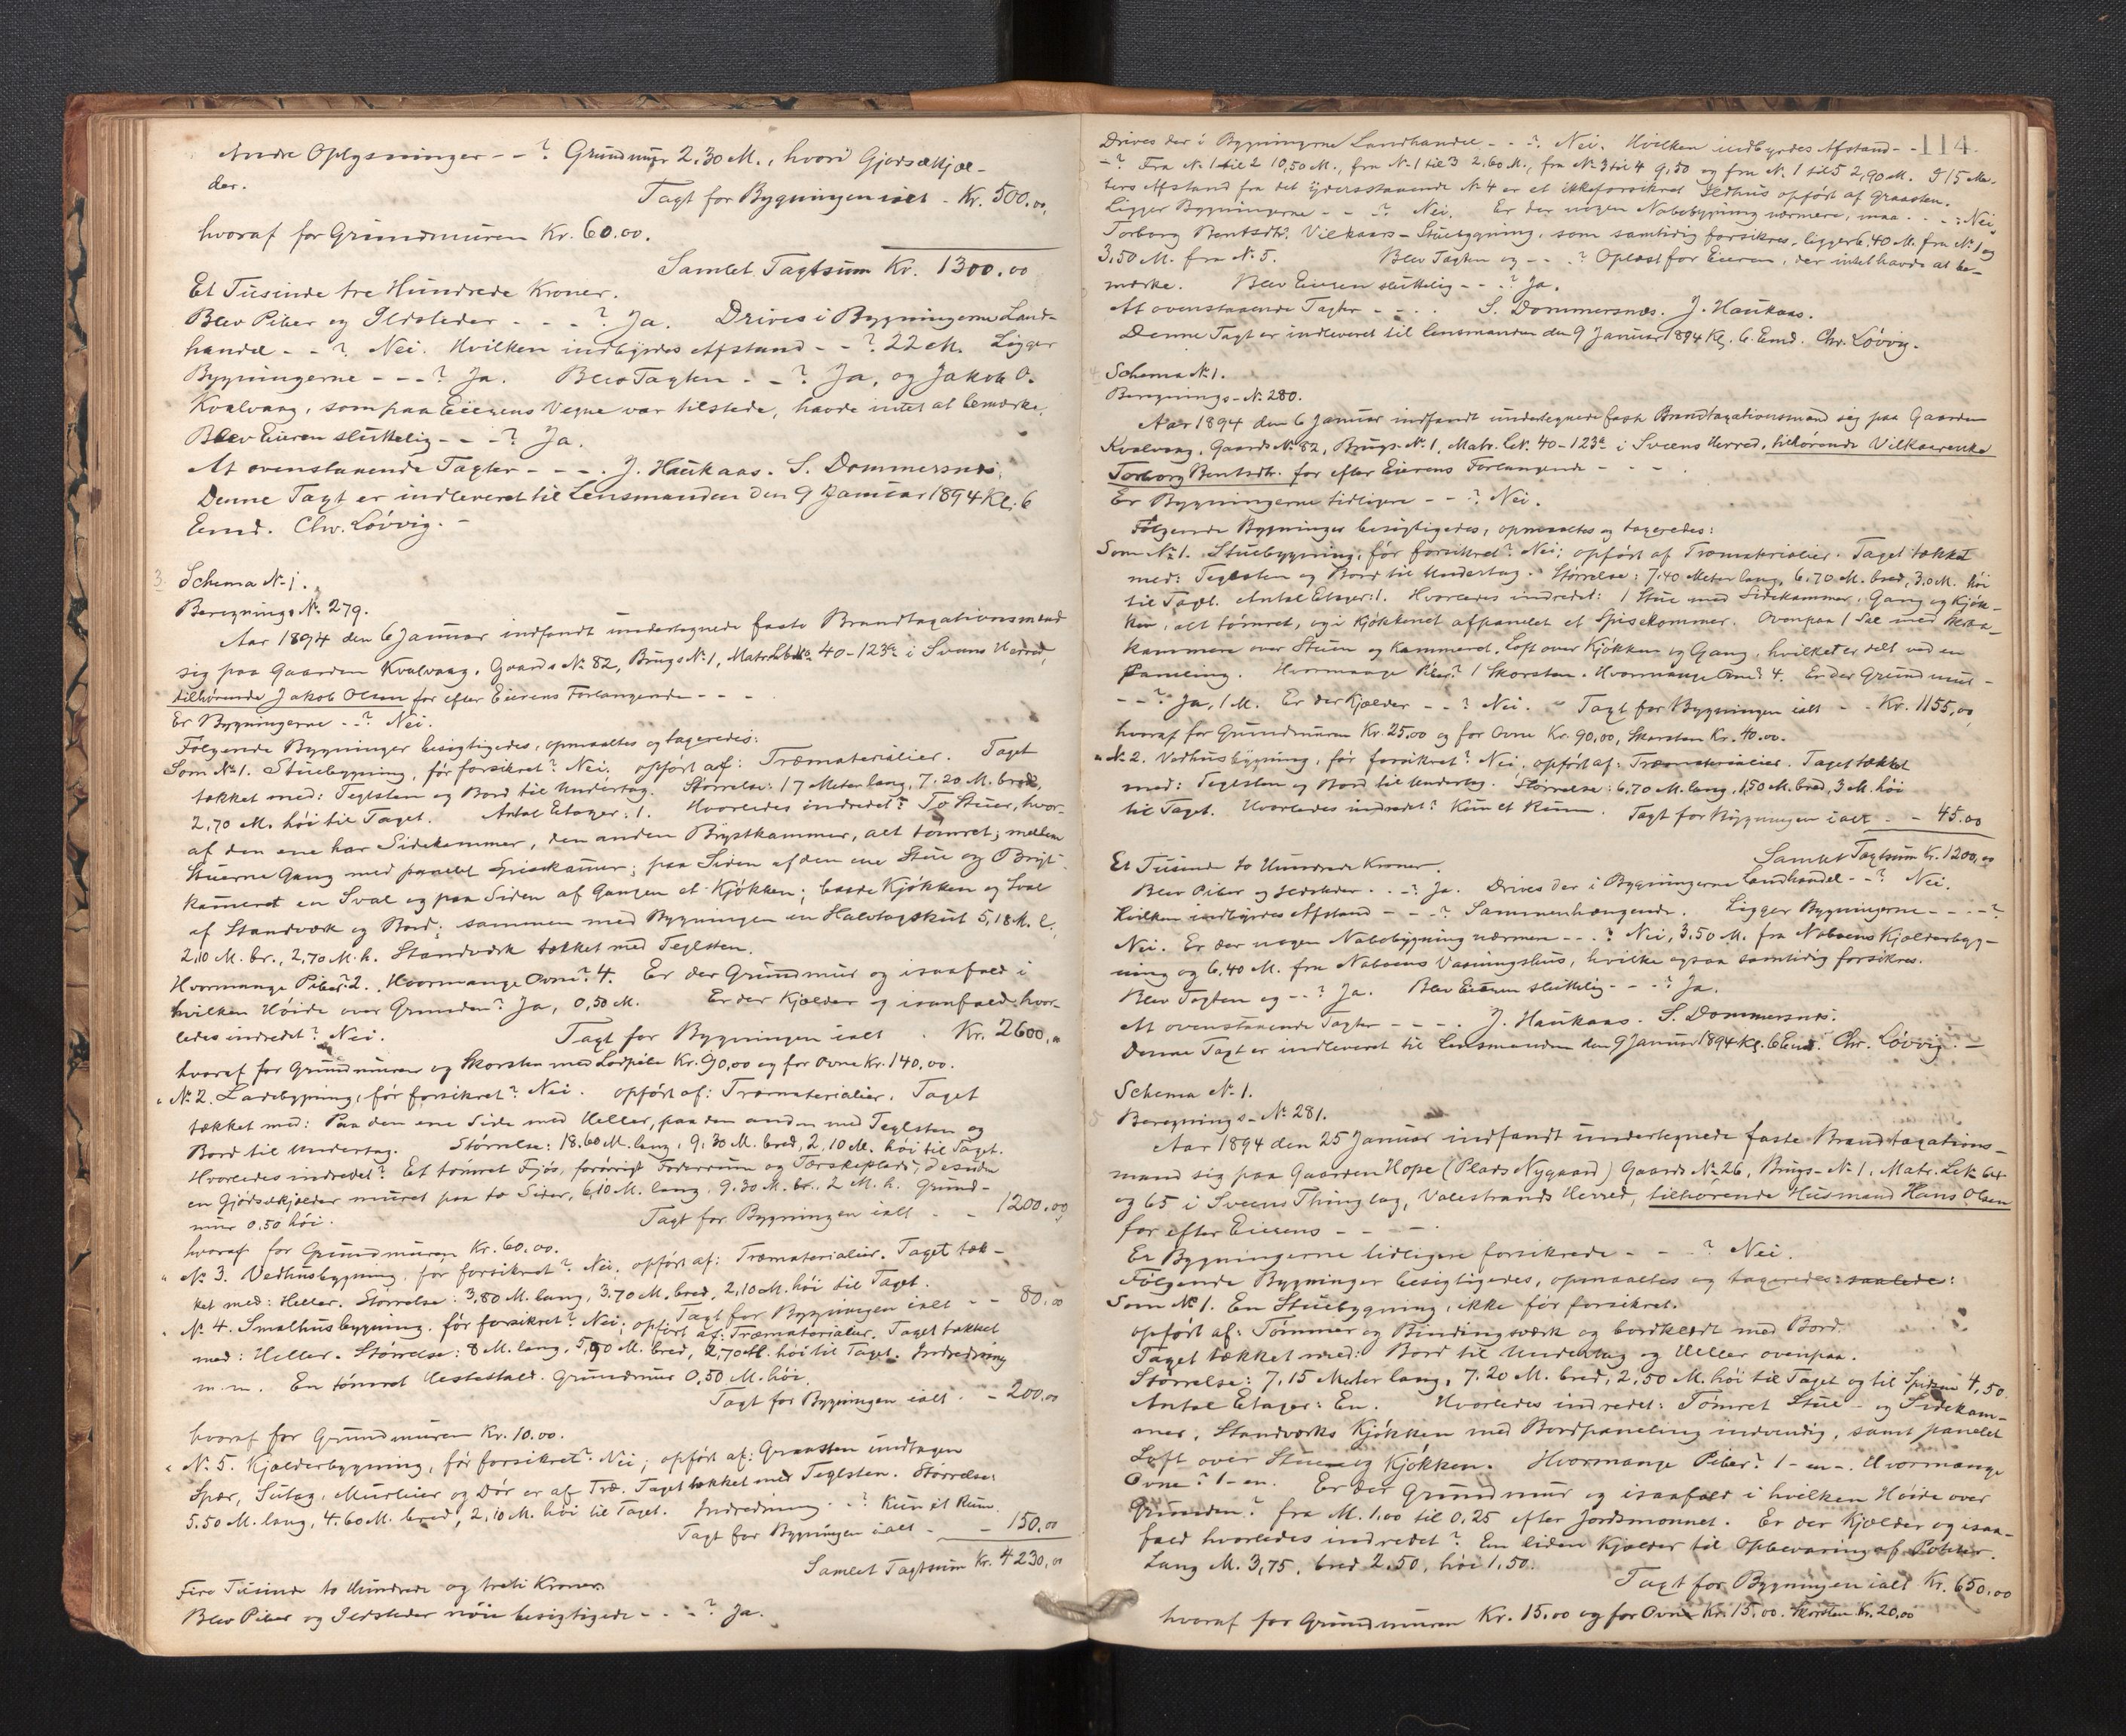 Andre Oplysninger - - ? Grundmur 2,30 M., hvori Gjødselkjæl-
der.
Taxt for Bygningen ialt - Kr. 500.00,
hvoraf for Grundmuren Kr. 60.00.
Samlet Taxtsum Kr. 1300.00
Et Tusinde tre Hundrede Kroner.
Blev Piber og Ildsteder - - - ? Ja. Drives i Bygningerne Land-
handel - - ? Nei. Hvilken indbyrdes Afstand - - ? 22 M. Ligger
Bygningerne - - - ? Ja. Blev Taxten - - ? Ja, og Jakob O.
Kvalvaag, som paa Eierens Vegne var tilstede, havde intet at bemærke.
Blev Eieren sluttelig - - - ? Ja.
At ovenstaaende Taxter - - - . J. Haukaas. S. Dommersnes.
Denne Taxt er indleveret til Lensmanden den 9 Januar 1894 Kl. 6
Emd. Chr. Løvvig. -
3. Schema No 1.
Beregnings No 279.
Aar 1894 den 6 Januar indfandt undertegnede faste Brandtaxationsmænd
sig paa Gaarden Kvalvaag, Gaards No 82, Brugs No 1, Matr. Lb No 40-123a i Sveens Herred,
tilhørende Jakob Olsen for efter Eierens Forlangende - - -
Er Bygningerne - - ? Nei.
Følgende Bygninger besigtigedes, opmaaltes og taxeredes:
Som No 1. Stuebygning, før forsikret? Nei. opført af: Træmaterialier. Taget
tækket med: Teglsten og Bord til Undertag. Størrelse: 17 Meter lang, 7.20 M. bred,
2,70 M. høi til Taget. Antal Etager: 1. Hvorledes indredet? To Stuer, hvor-
af den ene har Sidekammer, den anden Brystkammer, alt tømret; mellem
Stuerne Gang med panelet Spisekamer; paa Siden af den ene Stue og Bryst-
kameret en Sval og paa Siden af Gangen et Kjøkken; baade Kjøkken og Sval
af Standværk og Bord; sammen med Bygningen en Halvtagskut 5,18 M. l.,
2,10 M. br., 2,70 M. h. Standværk tækket med Teglsten.
Hvormange Piber? 2. Hvormange Ovne? 4. Er der Grundmur og isaafald i
hvilken Høide over Grunden? Ja, 0,50 M. Er der Kjælder og isaafald hvor-
ledes indredet? Nei. Taxt for Bygningen ialt . Kr. 2600.00
hvoraf for Grundmuren og Skorsten med Lodpibe Kr. 90,00 og for Ovne Kr. 140.00.
" No 2. Ladebygning, før forsikret? Nei. opført af: Træmaterialier. Taget
tækket med: Paa den ene Side med Heller, paa den anden med Teglsten og
Bord til Undertag. Størrelse: 18.60 M. lang, 9,30 M. bred, 2,10 M. høi til Taget.
Hvorledes indredet? Et tømret Fjøs, forøvrigt Foderrum og Tærskeplads, desuden
en Gjødselkjælder muret paa to Sider, 6,10 M. lang, 9.30 M. br., 2 M. h. Grund-
mur 0,50 høi. Taxt for Bygningen ialt - - 1200.00
hvoraf for Grundmuren Kr. 60.00.
" No 3. Vedhusbygning, før forsikret? Nei. opført af: Træmaterialier. Taget tæk-
ket med: Heller. Størrelse: 3,80 M. lang, 3,70 M. bred, 2,10 M. høi til Taget.
Taxt for Bygningen ialt - - 80.00
" No 4. Smalhusbygning, før forsikret? Nei; opført af: Træmaterialier. Taget tækket
med: Heller. Størrelse: 8 M. lang, 5,90 M. bred, 2,70 M. høi til Taget. Indredning
m. m. En tømret Hestestald. Grundmur 0,50 M. høi.
Taxt for Bygningen ialt . - 200.00
hvoraf for Grundmuren Kr. 10.00.
" No 5. Kjælderbygning, før forsikret? Nei; opført af: Graasten undtagen
Spær, Sutag, Murleier og Dør er af Træ. Taget tækket med Teglsten. Størrelse:
5.50 M. lang, 4.60 M. bred, 2,10 M. høi til Taget. Indredning - - ? Kun et Rum.
Taxt for Bygningen ialt - - 150.00
Samlet Taxtsum Kr. 4230.00
Fire Tusinde to Hundrede og treti Kroner.
Blev Piber og Ildsteder nøie besigtigede - - - ? Ja.
114.
Drives der i Bygningerne Landhandel - - - ? Nei. Hvilken indbyrdes Afstand - -
- ? Fra No 1 til 2 10,50 M., fra No 1 til 3 2,60 M., fra No 3 til 4 9,50 og fra No 1 til 5 2,90 M. I 15 Me-
ters Afstand fra det yderststaaende No 4 er et ikkeforsikret Ildhus opført af Graasten.
Ligger Bygningerne - - - ? Nei. Er der nogen Nabobygning nærmere, maa - - - : Nei,
Torborg Bentsdtr. Vilkaars-Stuebygning, som samtidig forsikres, ligger 6.40 M. fra No 1 og
3.50 M. fra No 5. Blev Taxten og - - - ? Oplæst for Eieren, der intet havde at be-
mærke. Blev Eieren sluttelig - - - ? Ja.
At ovenstaaende Taxter - - - . S. Dommersnes. J. Haukaas.
Denne Taxt er indleveret til Lensmanden den 9 Januar 1894 Kl. 6. Emd. Chr. Løvvig.
4. Schema No 1.
Beregnings-No 280.
Aar 1894 den 6 Januar indfandt undertegnede faste Brandtaxationsmænd sig paa Gaarden
Kvalvaag, Gaards No 82, Brugs-No 1, Matr. L.No. 40-123a i Sveens Herred, tilhørende Vilkaarenke
Torborg Bentsdtr. for efter Eierens Forlangende - - -
Er Bygningerne tidligere - - ? Nei.
Følgende Bygninger besigtigedes, opmaaltes og taxeredes:
Som No 1. Stuebygning, før forsikret? Nei; opført af Træmaterialier. Taget tækket
med: Teglsten og Bord til Undertag. Størrelse: 7.40 Meter lang, 6.70 M. bred, 3.0 M. høi
til Taget. Antal Etager: 1. Hvorledes indredet: 1 Stue med Sidekammer, Gang og Kjøk-
ken, alt tømret, og i Kjøkkenet afpanelet et Spisekammer. Ovenpaa 1 Sal med Skraa-
kammere over Stuen og Kammeret. Loft over Kjøkken og Gang, hvilket er delt ved en
Paneling. Hvormange Piber? 1 Skorsten. Hvormange Ovne? 4. Er der Grundmur -
- - ? Ja, 1 M. Er der Kjælder - - ? Nei. Taxt for Bygningen ialt - - Kr. 1155,00,
hvoraf for Grundmuren Kr. 25.00 og for Ovne Kr. 90,00, Skorsten Kr. 40.00.
" No 2. Vedhusbygning, før forsikret? Nei. opført af: Træmaterialier. Taget tækket
med: Teglsten og Bord til Undertag. Størrelse: 6,70 M. lang, 1,50 M. bred, 3 M. høi
til Taget. Hvorledes indredet? Kun et Rum. Taxt for Bygningen ialt - - 45.00
Samlet Taxtsum Kr. 1200,00
Et Tusinde to Hundrede Kroner.
Blev Piber og Ildsteder - - - ? Ja. Drives der i Bygningerne Landhandel - - ? Nei.
Hvilken indbyrdes Afstand - - - ? Sammenhængende. Ligger Bygningerne - - - - ?
Nei. Er der nogen Nabobygning nærmere - - - ? Nei, 3.50 M. fra Naboens Kjælderbyg-
ning og 6,40 M. fra Naboens Vaaningshus, hvilke ogsaa samtidig forsikres.
Blev Taxten og - - ? Ja. Blev Eieren sluttelig - - - ? Ja.
At ovenstaaende Taxter - - - . J. Haukaas. S. Dommersnes.
Denne Taxt er indleveret til Lensmanden den 9 Januar 1894 Kl. 6 Emd. Chr. Løvvig. -
Schema No 1.
Beregnings-No 281.
Aar 1894 den 25 Januar indfandt undertegnede faste Brandtaxations-
mænd sig paa Gaarden Hope (Plads Nygaard) Gaards No 26, Brugs-No 1, Matr. L.No 64
og 65 i Sveens Thinglag, Valestrands Herred, tilhørende Husmand Hans Olsen
for efter Eierens - - - .
Er Bygningerne tidligere forsikrede - - - ? Nei.
Følgende Bygninger besigtigedes, opmaaltes og taxeredes: saalede:
Som No 1. En Stuebygning, ikke før forsikret.
opført af: Tømmer og Bindingsværk og bordklædt med Bord.
Taget tækket med: Bord til Undertag og Heller ovenpaa.
Størrelse: 7,15 Meter lang, 7.20 M. bred, 2,50 M. høi til Taget og til Spidsen 4,50.
Antal Etager: En. Hvorledes indredet: Tømret Stue - og Sidekam-
mer, Standværks Kjøkken med Bordpaneling indvendig, samt panelet
Loft over Stue og Kjøkken. Hvormange Piber? 1 - en -. Hvormange
Ovne? 1 - en. Er der Grundmur og isaafald i hvilken Høide over
Grunden? fra M. 1,00 til 0,25 efter Jordsmonnet. Er der Kjælder og isaa-
fald hvorledes indredet? En liden Kjælder til Opbevaring af Poteter.
Lang M. 3,75, bred 2.50, høi 1,50.
Taxt for Bygningen ialt Kr. 650.00
hvoraf for Grundmuren Kr. 15.00 og for Ovne Kr. 15.00. Skorsten Kr. 20.00